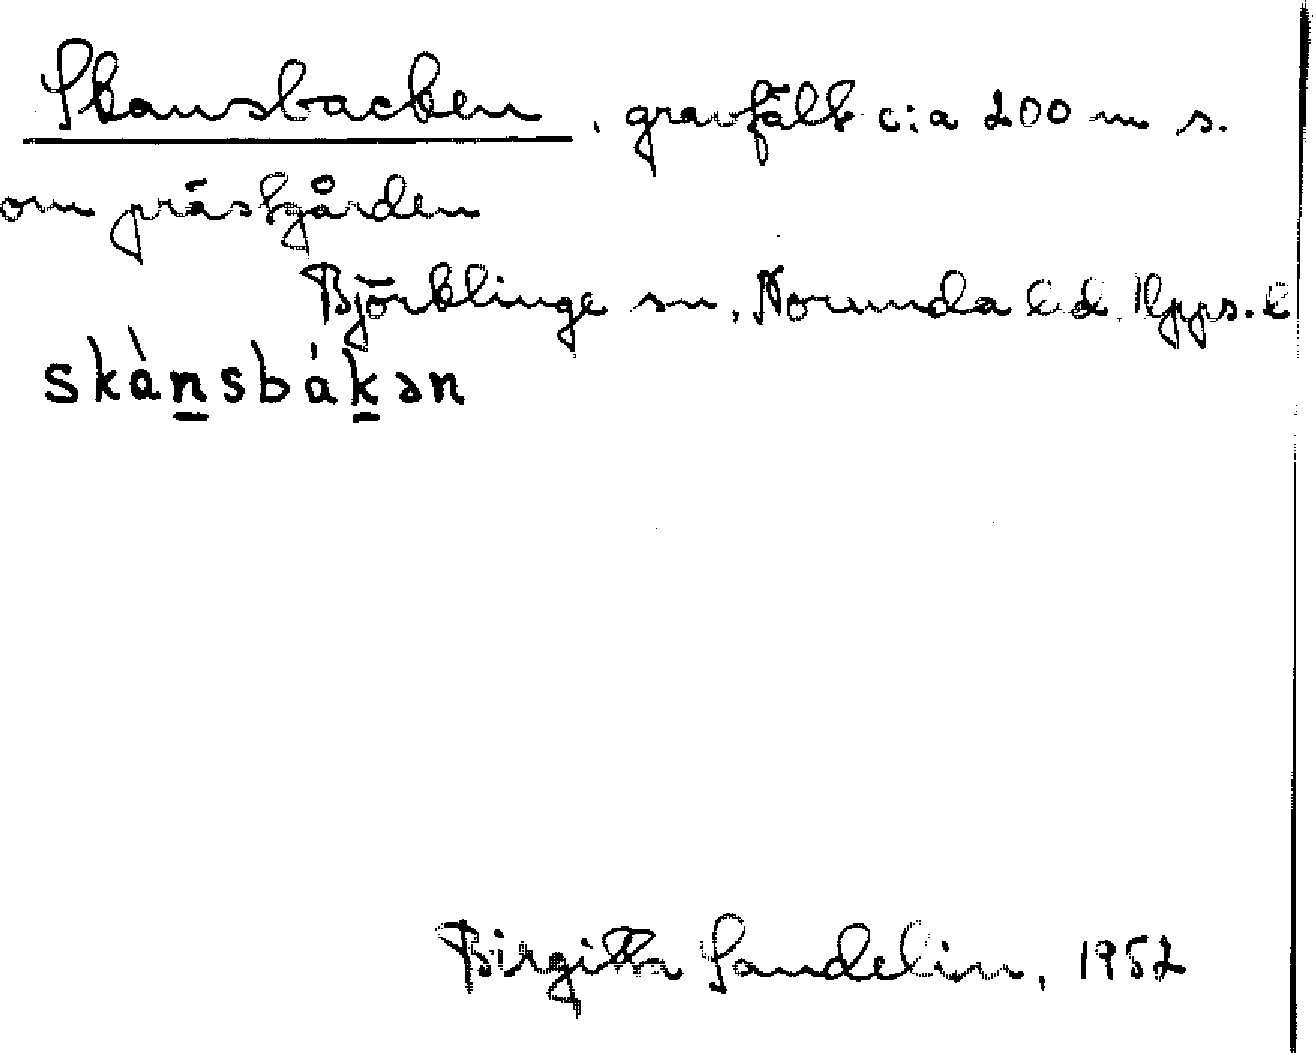 Skansbacken, gravfält c:a 200 m s.
om prästgården
Björklinge sn, Norunda hd. Upps. l
skànsbákən
Birgitta Sandelin, 1952